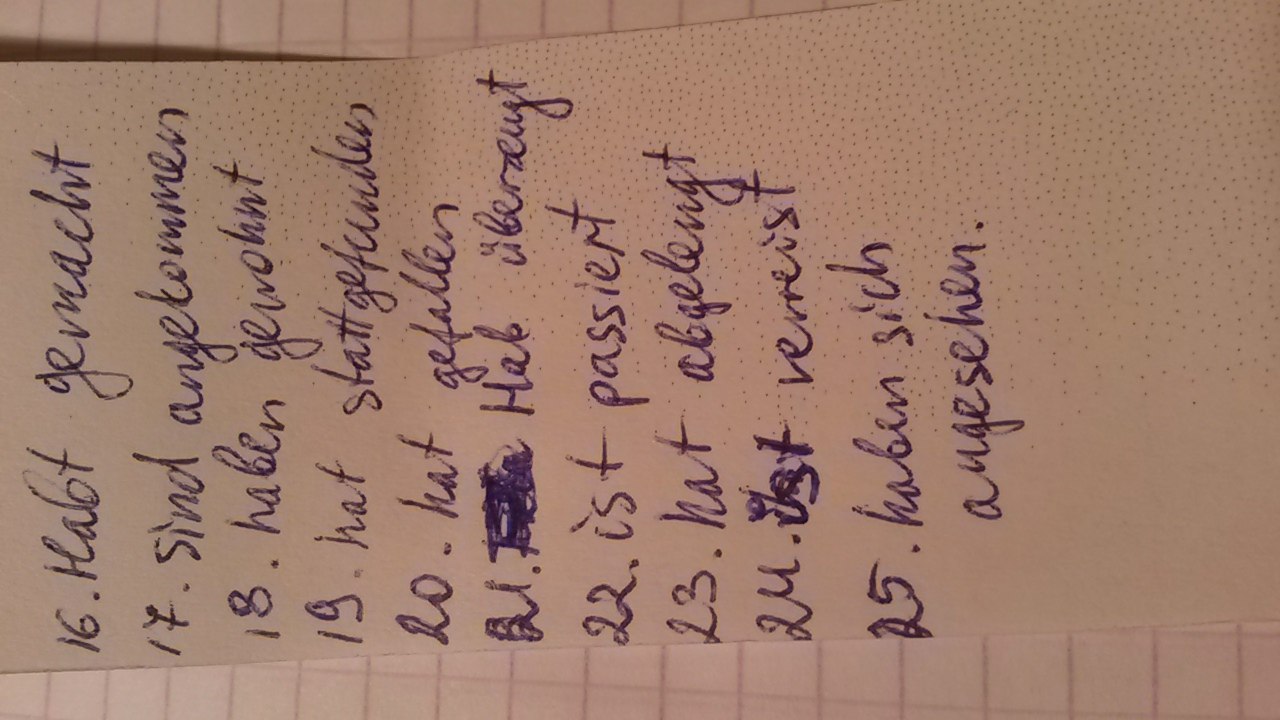 16. Habt gemacht
17. Sind angekommen
18. haben gewohnt
19. hat stattgefunden
20. hat gefallen
21. Hab überzeugt
22. ist passiert
23. hat abgelengt
24. ist verreist
25. haben sich
angesehen.